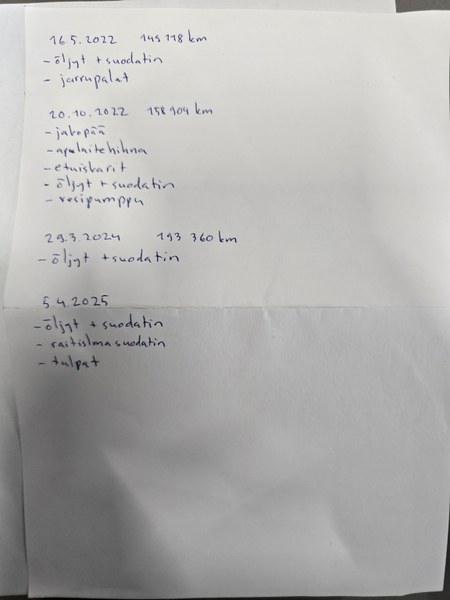 16.5.2022 145 118 km
- öljyt + suodatin
- jarrupalat
20.10.2022 158 904 km
- jakopää
- apulaitehihna
- etuiskarit
- öljyt + suodatin
- vesipumppu
29.3.2024 193 360 km
- öljyt + suodatin
5.4.2025
- öljyt + suodatin
- raitisilmasuodatin
- tulpat